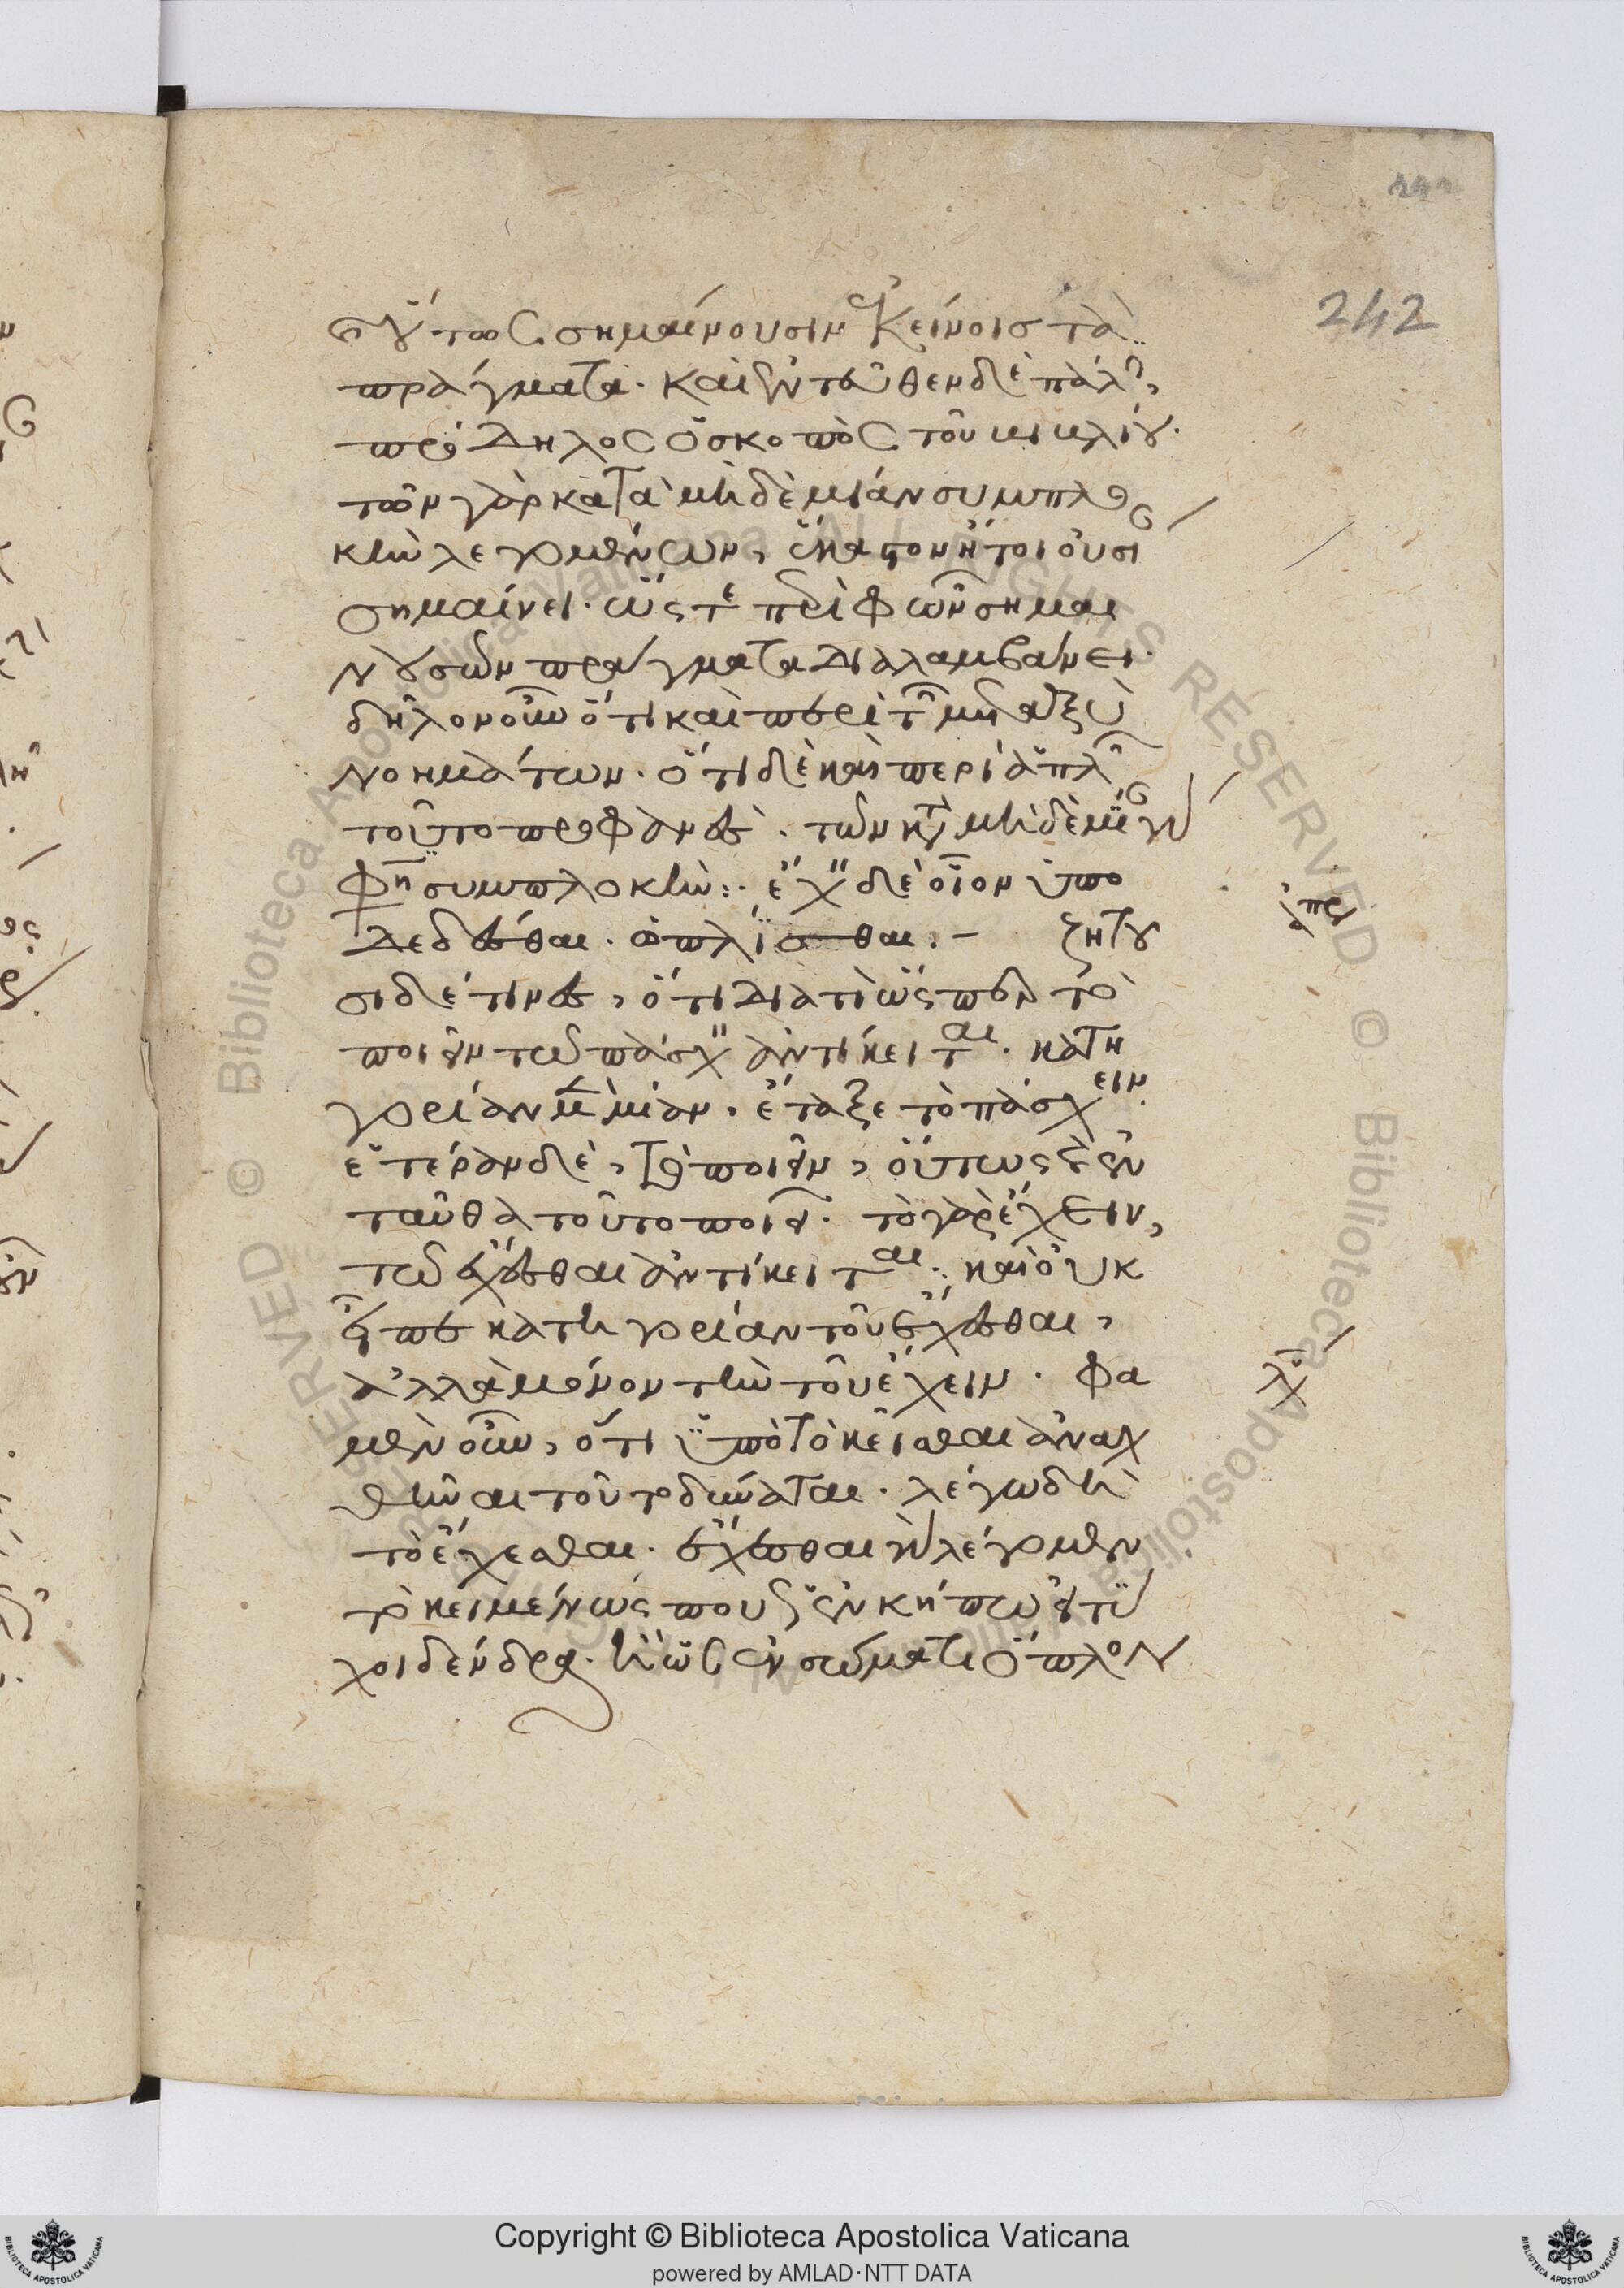 242
οὕτως σημαίνουσιν ἐκείνοις τὰ
πράγματα. καὶ ἐντεῦθεν δὲ πάλιν,
πρόδηλος ὁ σκοπὸς τοῦ βιβλίου.
τῶν γὰρ κατὰ μηδεμίαν συμπλο
κὴν λεγομένων, ἕκαστον ἤτοι οὐσί
σημαίνει. ὥστε περὶ φωνῶν σημαι
νουσῶν πράγματα διαλαμβάνει.
δηλονοῦν ὅτι καὶ περὶ τῶν μεταξὺ
νοημάτων. ὅτι δὲ καὶ περὶ ἁπλῶν
τοῦτο προφανὲς. τῶν κατὰ μηδεμίαν γὰρ
φησι συμπλοκήν: ἔχειν δὲ οἷον ὑπο
δεδέσθαι. ὡπλίσθαι:– ζητοῦ
σι δέ τινες, ὅτι διατὶ ὥσπερ τὸ
ποιεῖν τῶ πάσχειν ἀντίκειται. κατη
γορίαν μὲν μίαν. ἔταξε τὸ πάσχειν.
ἑτέραν δὲ, τὸ ποιεῖν, οὕτως καὶ ἐν
ταῦθα τοῦτο ποιεῖ. τὸ γὰρ ἔχειν,
τῶ ἔχεσθαι ἀντίκειται. καὶ οὐκ
εἶπε κατηγορίαν τοῦ ἔχεσθαι,
ἀλλὰ μόνον τὴν τοῦ ἔχειν. φα
μὲν οὖν, ὅτι ὑπὸ τὸ κεῖσθαι ἀναχ
θῆναι τοῦτο δύναται. λέγω δὴ
τὸ ἔχεσθαι. ἔχεσθαι γὰρ λέγομεν
τὸ κειμένως που ὡς ἐν κήπω εἰ τύ
χοι δένδρα. ἢ ὡς ἐν σώματι ὅπλον